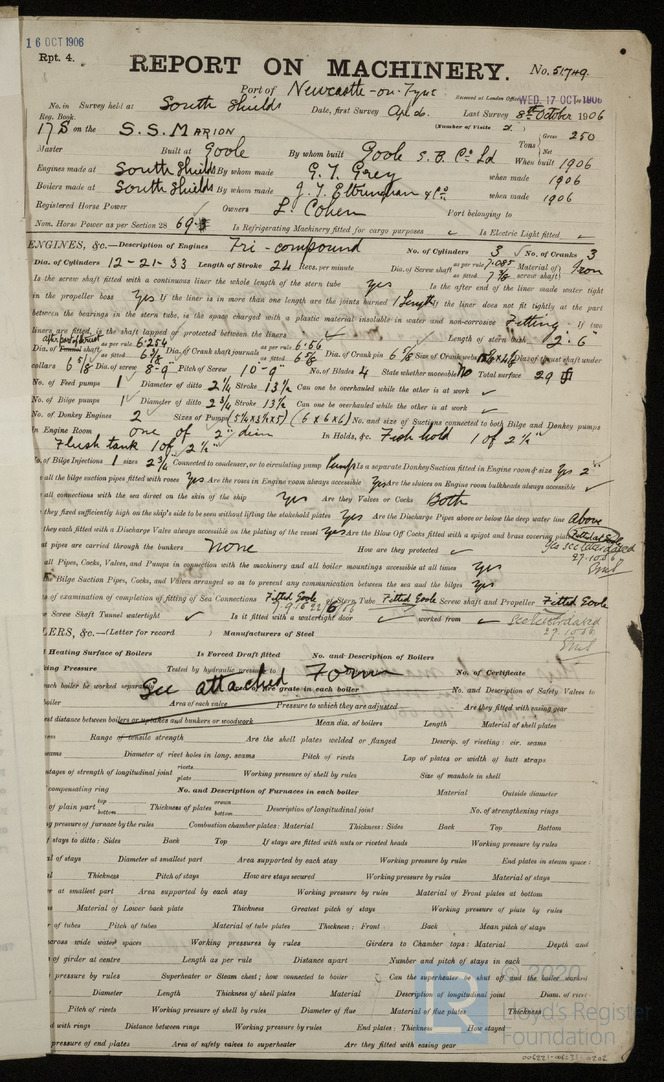 16 OCT 1906
Rpt. 4.
REPORT ON MACHINERY.
No. 51,749.
Port of Newcastle-on-Tyne
Received at London Office WED. 17 OCT 1906
No. in Survey held at South Shields Date, first Survey Last Survey 8th October 1906
Reg. Book.
(Number of Visits
17 S on the S.S. MARION
Tons Gross 250
Net
Master Built at Goole By whom built Goole S. B. Co Ld When built 1906
Engines made at South Shields By whom made G. T. Grey when made 1906
Boilers made at South Shields By whom made J. T. Eltringham & Co when made 1906
Registered Horse Power Owners L. Cohen Port belonging to
Nom. Horse Power as per Section 28 69 Is Refrigerating Machinery fitted for cargo purposes Is Electric Light fitted
ENGINES, &c.—Description of Engines Tri-compound No. of Cylinders 3 No. of Cranks 3
Dia. of Cylinders 12-21-33 Length of Stroke 24 Revs. per minute Dia. of Screw shaft as per rule 7.085 as fitted 7 3/8 Material of screw shaft Iron
Is the screw shaft fitted with a continuous liner the whole length of the stern tube yes Is the after end of the liner made water tight
in the propeller boss Yes If the liner is in more than one length are the joints burned 1 Length If the liner does not fit tightly at the part
between the bearings in the stern tube, is the space charged with a plastic material insoluble in water and non-corrosive Fitting If two
liners are fitted, is the shaft lapped or protected between the liners Length of stern bush 2'.6"
Dia. of Tunnel shaft as per rule 6.254 as fitted 6 5/8 Dia. of Crank shaft journals as per rule 6.56 as fitted 6 5/8 Dia. of Crank pin 6 5/8 Size of Crank webs Dia. of thrust shaft under
collars 6 5/8 Dia. of screw 8-9" Pitch of Screw 10-9" No. of Blades 4 State whether moveable No Total surface 29
No. of Feed pumps 1 Diameter of ditto 2 3/4 Stroke 13 1/2 Can one be overhauled while the other is at work
No. of Bilge pumps 1 Diameter of ditto 2 3/4 Stroke 13 1/2 Can one be overhauled while the other is at work
No. of Donkey Engines 2 Sizes of Pumps (5 1/4 x 3 1/2 x 5) (6 x 6 x 6) No. and size of Suctions connected to both Bilge and Donkey pumps
In Engine Room one of 2" diam In Holds, &c. Fish hold 1 of 2 1/2"
Flush tank 1 of 2 1/2"
No. of Bilge Injections 1 sizes 2 3/4" Connected to condenser, or to circulating pump Pump Is a separate Donkey Suction fitted in Engine room & size Yes 2"
all the bilge suction pipes fitted with roses Yes Are the roses in Engine room always accessible Yes Are the sluices on Engine room bulkheads always accessible
all connections with the sea direct on the skin of the ship Yes Are they Valves or Cocks Both
they fixed sufficiently high on the ship's side to be seen without lifting the stokehold plates Yes Are the Discharge Pipes above or below the deep water line above
they each fitted with a Discharge Valve always accessible on the plating of the vessel yes Are the Blow Off Cocks fitted with a spigot and brass covering plate Fitted at Goole
Yes see letter dated
27.10.06
at pipes are carried through the bunkers None How are they protected
all Pipes, Cocks, Valves, and Pumps in connection with the machinery and all boiler mountings accessible at all times yes
Bilge Suction Pipes, Cocks, and Valves arranged so as to prevent any communication between the sea and the bilges yes
of examination of completion of fitting of Sea Connections Fitted Goole of Stern Tube Fitted Goole Screw shaft and Propeller Fitted Goole
Screw Shaft Tunnel watertight Is it fitted with a watertight door worked from
See letter dated
27.10.06
LERS, &c.—(Letter for record ) Manufacturers of Steel
Heating Surface of Boilers Is Forced Draft fitted No. and Description of Boilers
king Pressure Tested by hydraulic pressure to No. of Certificate
See attached Form
each boiler be worked separately Area of fire grate in each boiler No. and Description of Safety Valves to
boiler Area of each valve Pressure to which they are adjusted Are they fitted with easing gear
est distance between boilers or uptakes and bunkers or woodwork Mean dia. of boilers Length Material of shell plates
ness Range of tensile strength Are the shell plates welded or flanged Descrip. of riveting: cir. seams
seams Diameter of rivet holes in long. seams Pitch of rivets Lap of plates or width of butt straps
ntages of strength of longitudinal joint rivets plate Working pressure of shell by rules Size of manhole in shell
compensating ring No. and Description of Furnaces in each boiler Material Outside diameter
of plain part top bottom Thickness of plates crown bottom Description of longitudinal joint No. of strengthening rings
ng pressure of furnace by the rules Combustion chamber plates: Material Thickness: Sides Back Top Bottom
f stays to ditto: Sides Back Top If stays are fitted with nuts or riveted heads Working pressure by rules
al of stays Diameter at smallest part Area supported by each stay Working pressure by rules End plates in steam space:
al Thickness Pitch of stays How are stays secured Working pressure by rules Material of stays
er at smallest part Area supported by each stay Working pressure by rules Material of Front plates at bottom
ess Material of Lower back plate Thickness Greatest pitch of stays Working pressure of plate by rules
er of tubes Pitch of tubes Material of tube plates Thickness: Front Back Mean pitch of stays
across wide water spaces Working pressures by rules Girders to Chamber tops: Material Depth and
of girder at centre Length as per rule Distance apart Number and pitch of stays in each
pressure by rules Superheater or Steam chest; how connected to boiler Can the superheater be shut off and the boiler worked
Diameter Length Thickness of shell plates Material Description of longitudinal joint Diam. of rivet
Pitch of rivets Working pressure of shell by rules Diameter of flue Material of flue plates Thickness
d with rings Distance between rings Working pressure by rules End plates: Thickness How stayed
pressure of end plates Area of safety valves to superheater Are they fitted with easing gear
© 2020
Lloyd's Register
Foundation